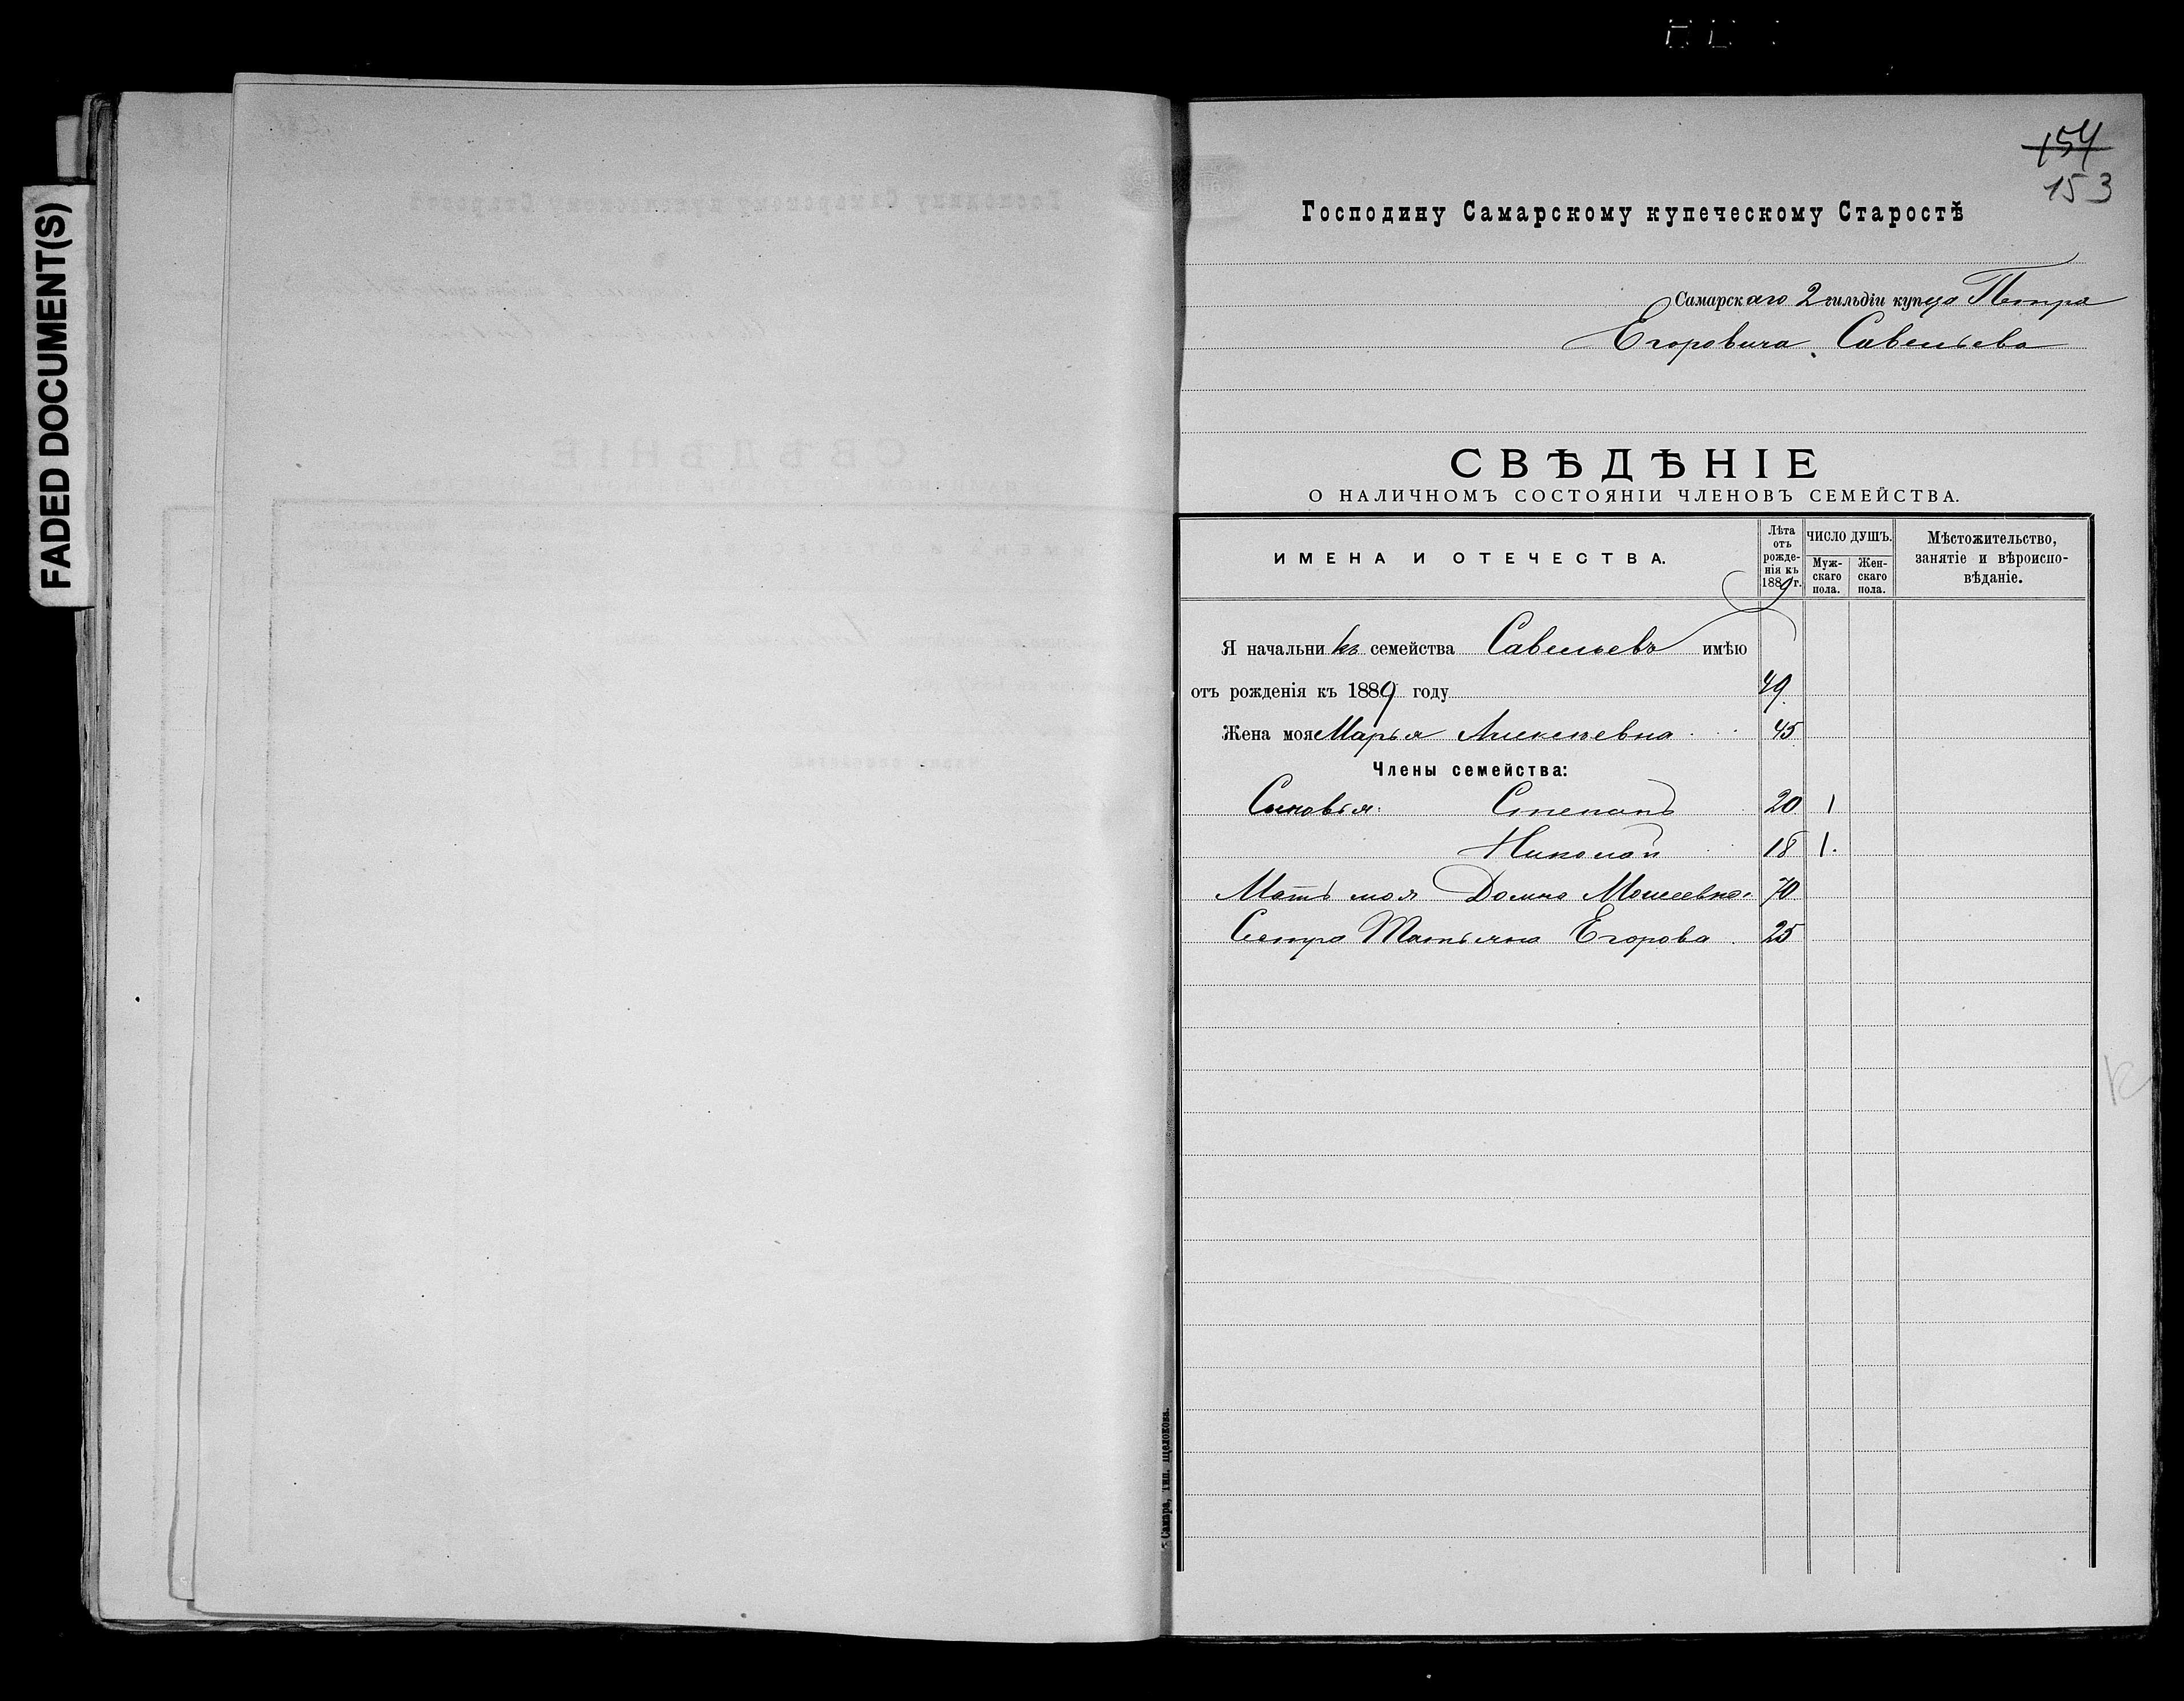 FADED DOCUMENT(S)
154
153
Господину Самарскому купеческому Старостѣ
Самарскаго 2 гильдіи купца Петра
Егоровича Савельева
СВѢДѢНІЕ
О НАЛИЧНОМЪ СОСТОЯНІИ ЧЛЕНОВЪ СЕМЕЙСТВА.
ИМЕНА И ОТЕЧЕСТВА.
Лѣта
отъ
рожде-
нія къ
1889 г.
ЧИСЛО ДУШЪ.
Муж-
скаго
пола.
Жен-
скаго
пола.
Мѣстожительство,
занятіе и вѣроиспо-
вѣданіе.
Я начальникъ семейства Савельевъ имѣю
отъ рожденія къ 1889 году 49
Жена моя Марья Алексѣевна 45
Члены семейства:
Сыновья: Степанъ 20 1
Николай 18 1.
Мать моя Домна Моисеевна 70
Сестра Татьяна Егорова 25
Самара, тип. Щелокова.